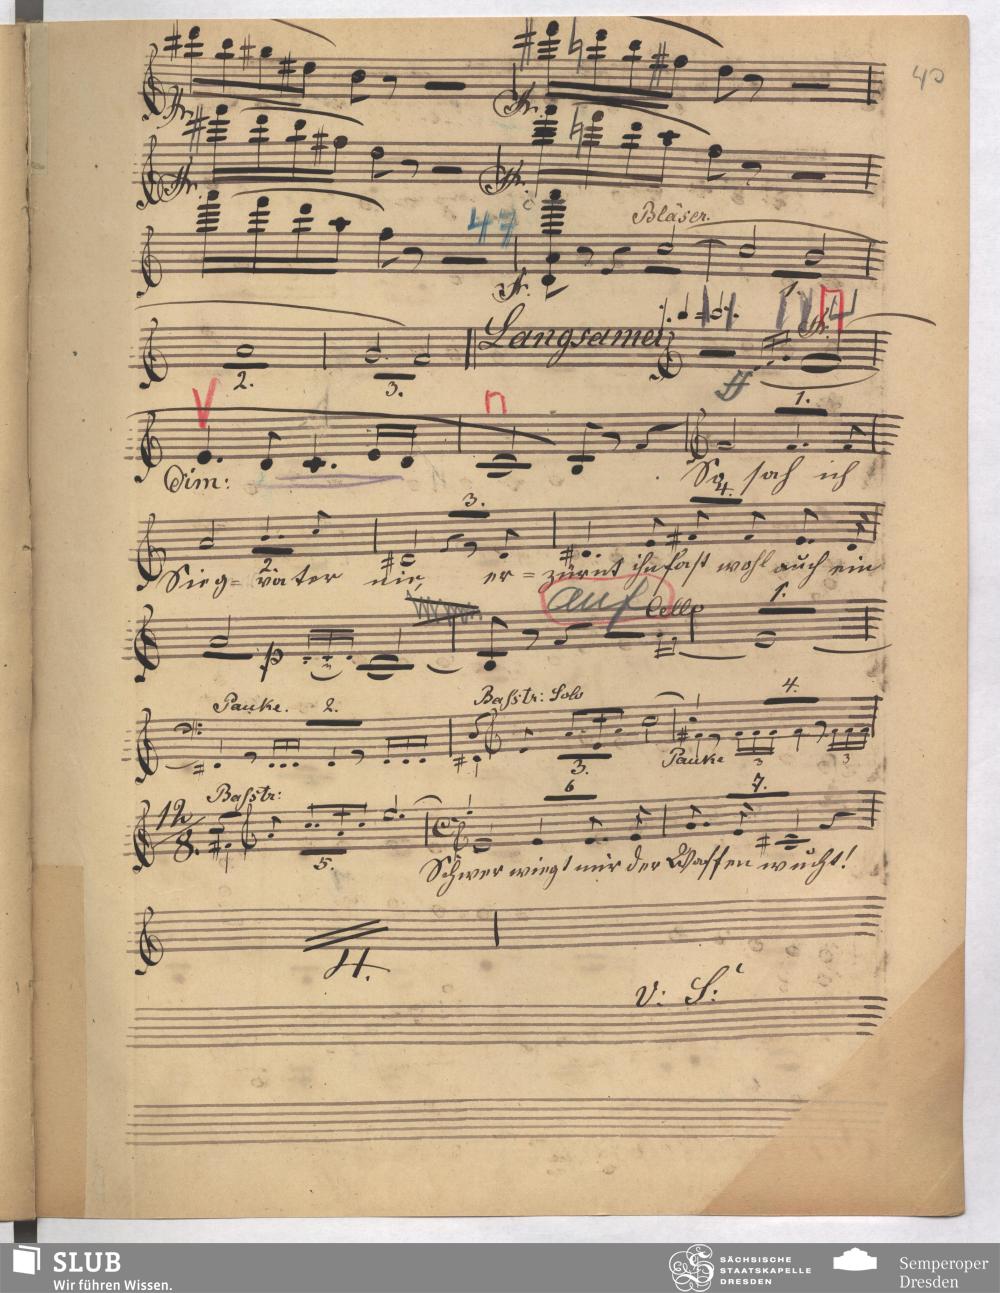 40
tr.
tr.
tr.
tr.
47
Bläser.
tr.
1.
2.
3.
Langsamer
tr.
ff
V
Dim:
1.
So sah ich
2.
3.
4.
Sieg=vater nie er=zürnt ihn fast wohl auch ein
auf
Cello
1.
p
3
Pauke. 2.
Basstr: Solo
3.
Pauke
4.
3
3
12/8.
Basstr:
5.
6
7.
Schwer wiegt mir der Waffen wucht!
4.
V: S:
SLUB
Wir führen Wissen.
SÄCHSISCHE
STAATSKAPELLE
DRESDEN
Semperoper
Dresden